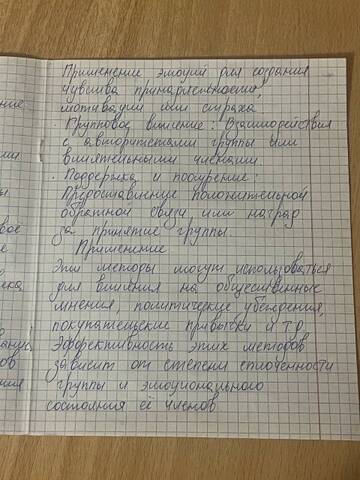 ние
Применение эмоций для создания
чувства принадлежности,
мотивации или страха
· Групповое влияние: Взаимодействия
с авторитетами группы или
влиятельными членами
· Поддержка и поощрение:
Предоставление положительной
обратной связи или наград
за принятие группы.
Применение
Эти методы могут использоваться
для влияния на общественные
мнения, политические убеждения,
покупательские привычки и т.д.
Эффективность этих методов
зависит от степени сплоченности
группы и эмоционального
состояния её членов